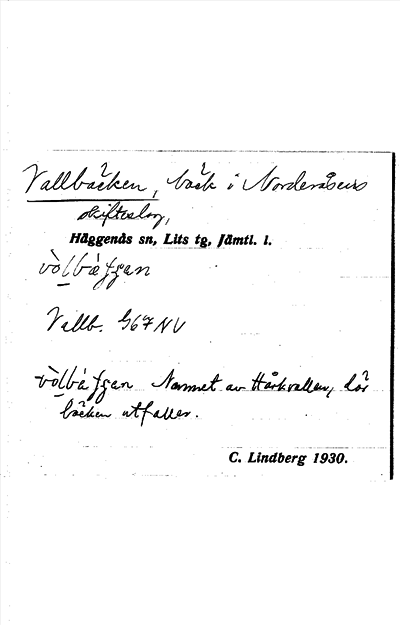 Vallbäcken, bäck i Norderåsens
skifteslag,
Häggenås sn, Lits tg, Jämtl. l.
Vallb. G67NV
Namnet av Hårkvallen, där
bäcken utfaller.
C. Lindberg 1930.